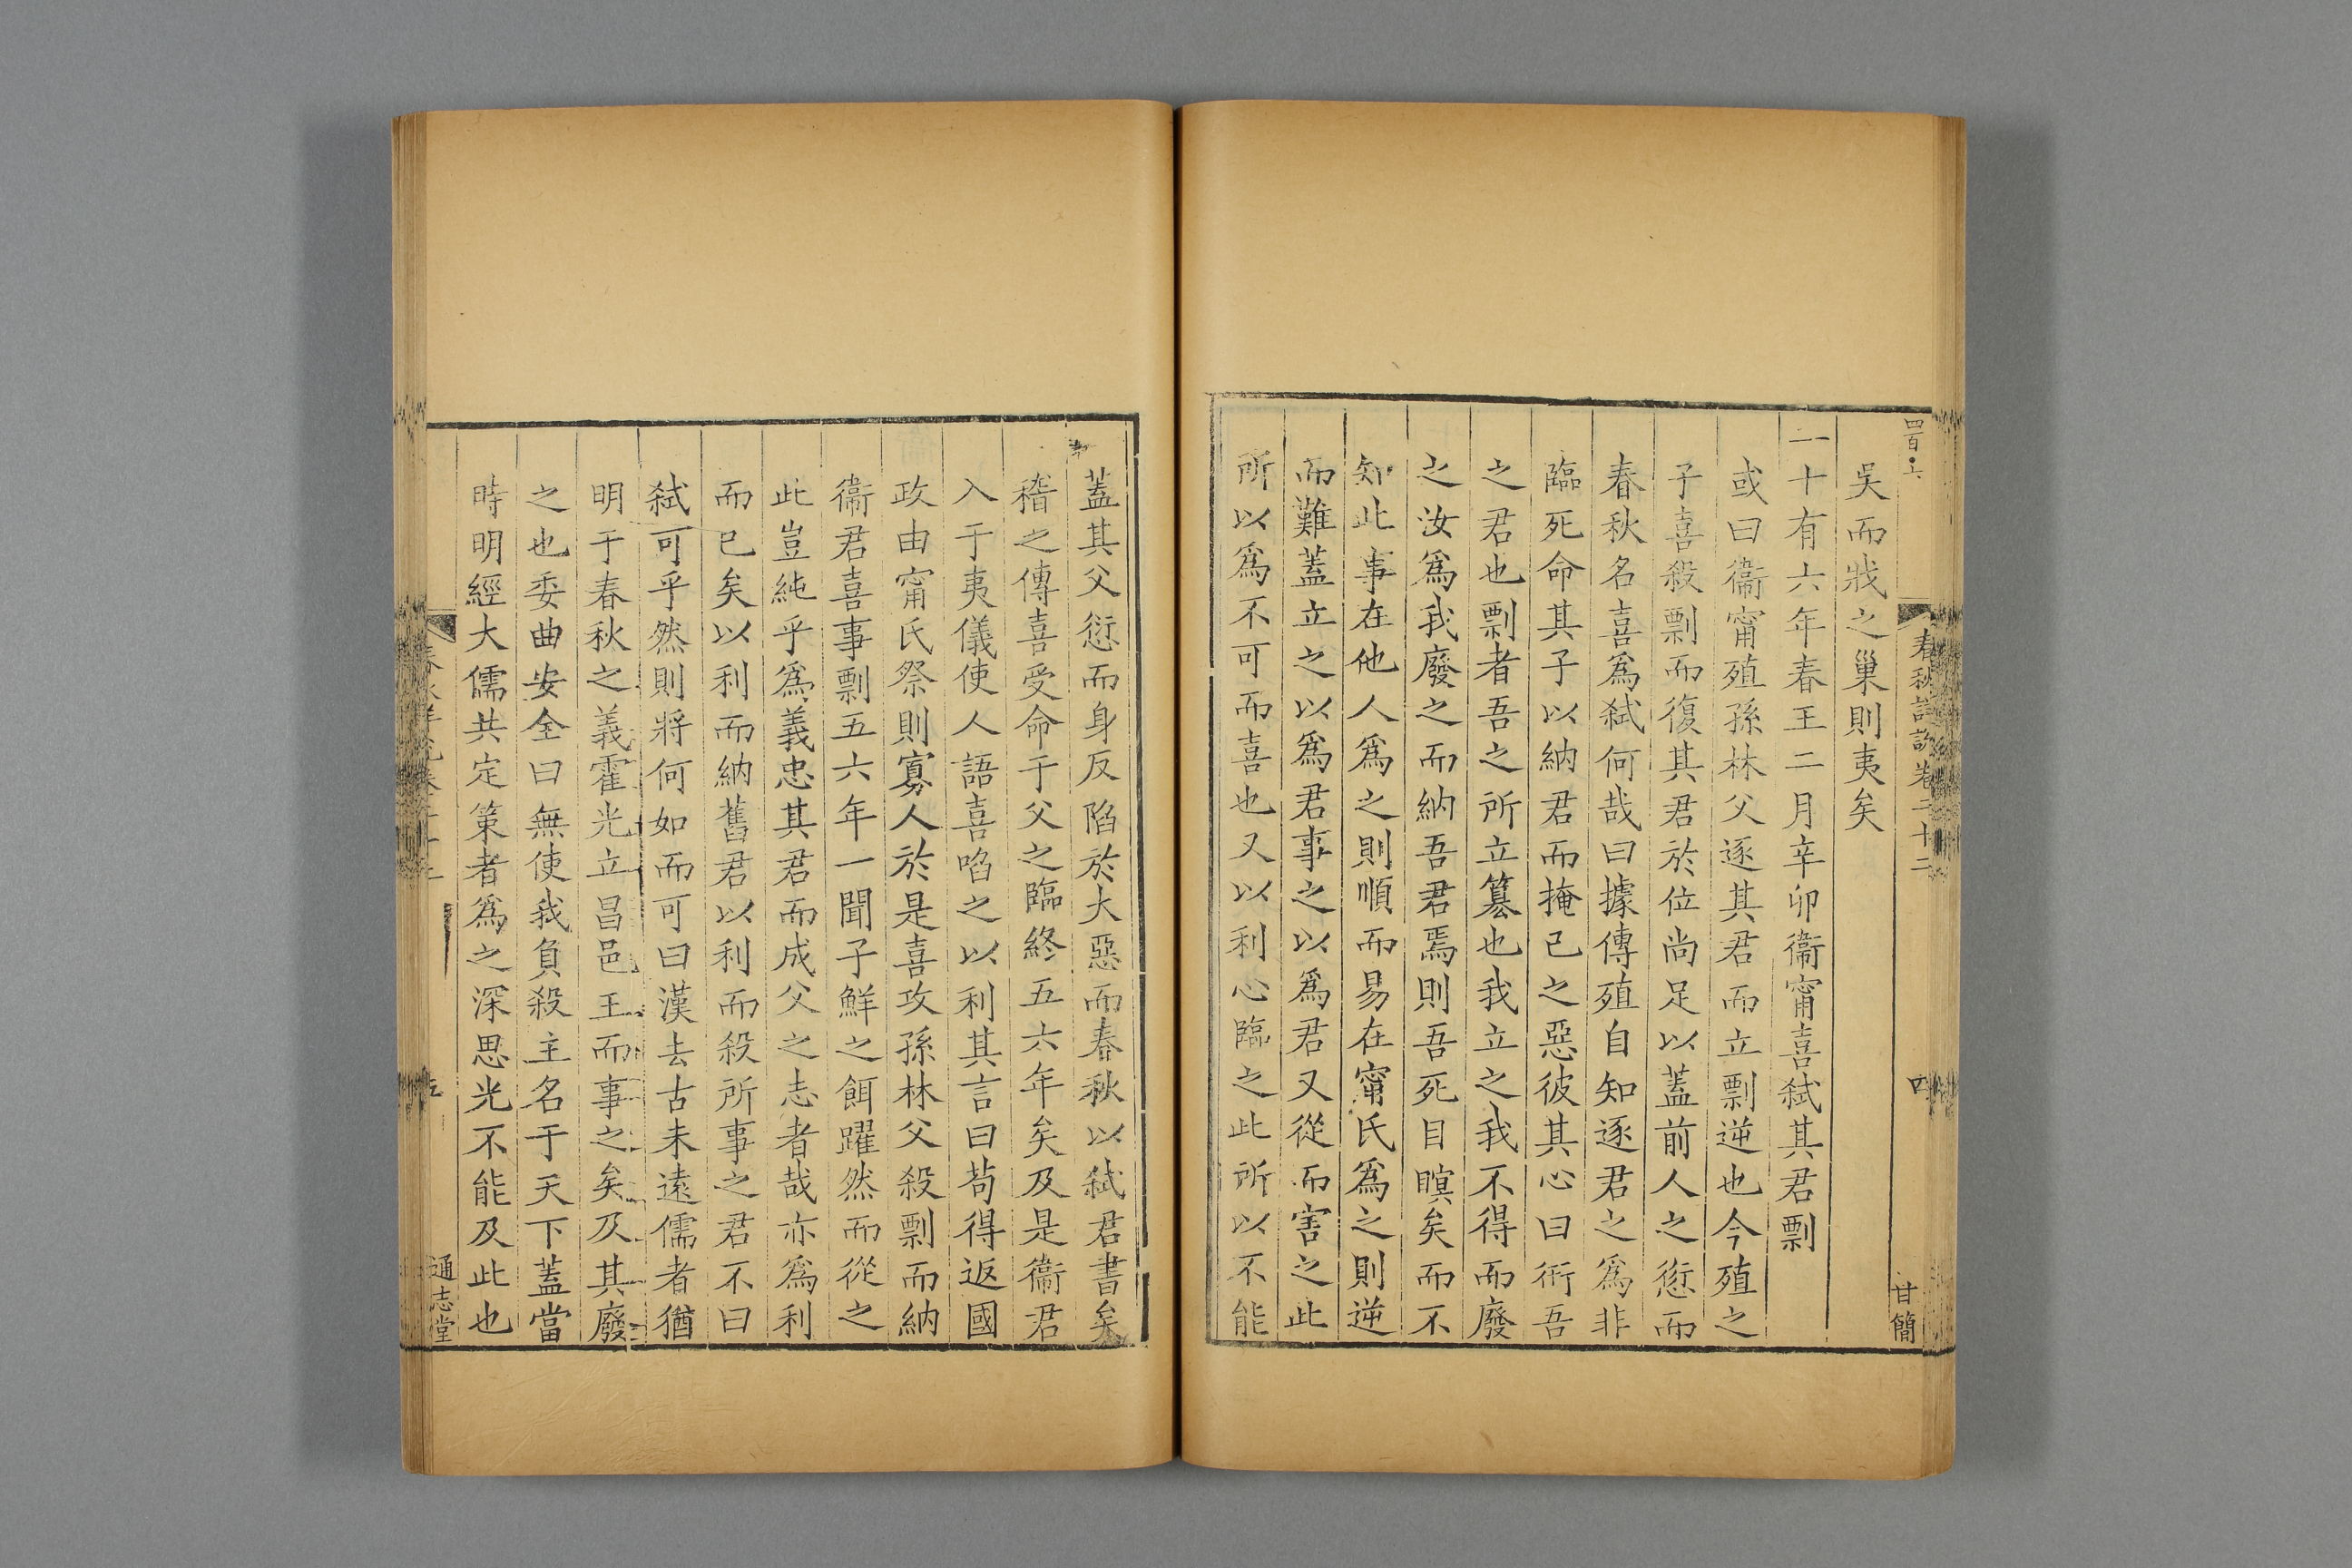 四百·六
春秋詳說卷二十二
四
甘簡
吳而戕之巢則夷矣
二十有六年春王二月辛卯衞甯喜弒其君剽
或曰衞甯殖孫林父逐其君而立剽逆也今殖之
子喜殺剽而復其君於位尚足以蓋前人之愆而
春秋名喜爲弒何哉曰據傳殖自知逐君之爲非
臨死命其子以納君而掩己之惡彼其心曰衎吾
之君也剽者吾之所立簒也我立之我不得而廢
之汝爲我廢之而納吾君焉則吾死目瞑矣而不
知此事在他人爲之則順而易在甯氏爲之則逆
而難蓋立之以爲君事之以爲君又從而害之此
所以爲不可而喜也又以利心臨之此所以不能
蓋其父愆而身反陷於大惡而春秋以弒君書矣
稽之傳喜受命于父之臨終五六年矣及是衞君
入于夷儀使人語喜啗之以利其言曰茍得返國
政由甯氏祭則寡人於是喜攻孫林父殺剽而納
衞君喜事剽五六年一聞子鮮之餌躍然而從之
此豈純乎爲義忠其君而成父之志者哉亦爲利
而已矣以利而納舊君以利而殺所事之君不曰
弒可乎然則將何如而可曰漢去古未遠儒者猶
明于春秋之義霍光立昌邑王而事之矣及其廢
之也委曲安全曰無使我負殺主名于天下蓋當
時明經大儒共定策者爲之深思光不能及此也
五
通志堂